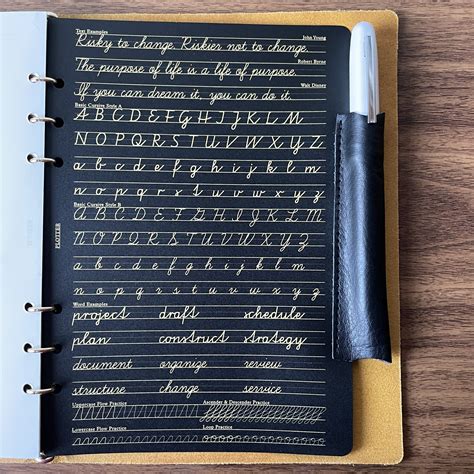 Text Examples John Young
Risky to change. Riskier not to change.
Robert Byrne
The purpose of life is a life of purpose.
Walt Disney
If you can dream it, you can do it.
Basic Cursive Style A
A B C D E F G H I J K L M
N O P Q R S T U V W X Y Z
a b c d e f g h i j k l m
n o p q r s t u v w x y z
Basic Cursive Style B
A B C D E F G H I J K L M
N O P Q R S T U V W X Y Z
a b c d e f g h i j k l m
n o p q r s t u v w x y z
Word Examples
project draft schedule
plan construct strategy
document organize review
structure change service
Uppercase Flow Practice Ascender & Descender Practice
Lowercase Flow Practice Loop Practice
PLOTTER